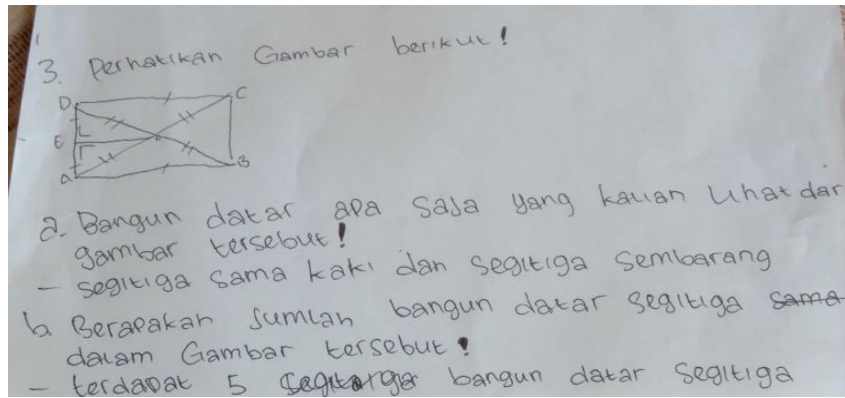 3. Perhatikan Gambar berikut!
D C
E
a B
a. Bangun datar apa saja yang kalian lihat dar
gambar tersebut!
- segitiga sama kaki dan segitiga sembarang
b. Berapakah jumlah bangun datar segitiga sama
dalam Gambar tersebut?
- terdapat 5 bangun datar segitiga